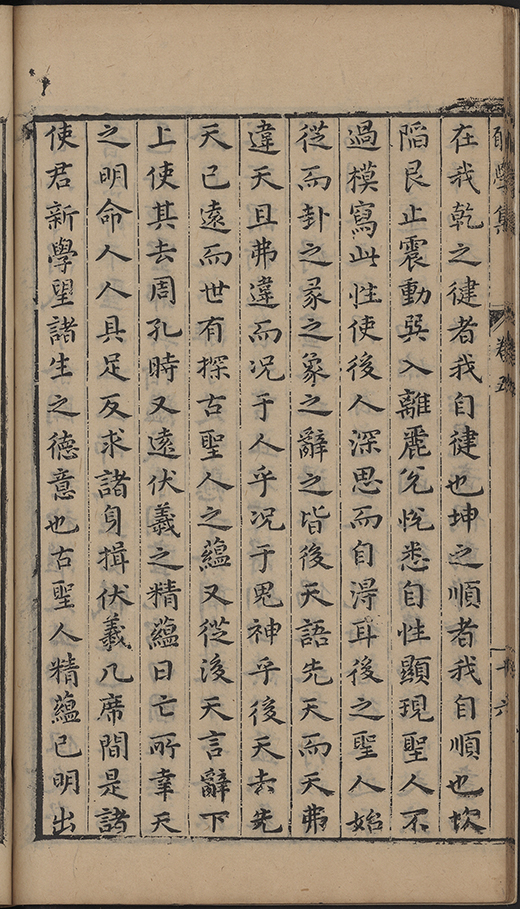 在我乾之健者我自健也坤之順者我自順也坎
陷艮止震動巽入離麗兌悅悉自性顯現聖人不
過模寫此性使後人深思而自得耳後之聖人始
從而卦之彖之象之辭之皆後天語先天而天弗
違天且弗違而况于人乎况于鬼神乎後天去先
天已遠而世有探古聖人之蘊又從後天言辭下
上使其去周孔時又遠伏羲之精蘊日亡所幸天
之明命人人具足反求諸身揖伏羲几席間是諸
使君新學望諸生之德意也古聖人精蘊已明出